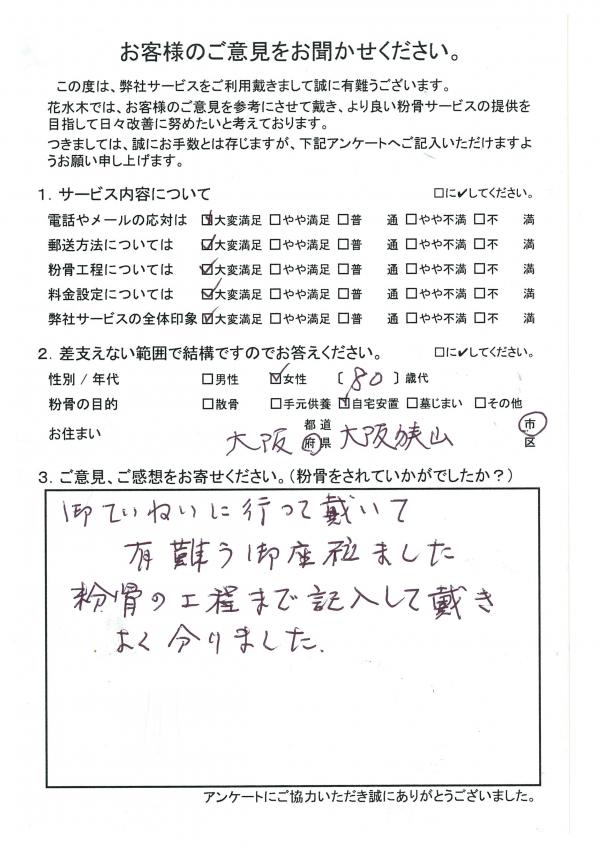 お客様のご意見をお聞かせください。
この度は、弊社サービスをご利用戴きまして誠に有難うございます。
花水木では、お客様のご意見を参考にさせて戴き、より良い粉骨サービスの提供を
目指して日々改善に努めたいと考えております。
つきましては、誠にお手数とは存じますが、下記アンケートへご記入いただけますよ
うお願い申し上げます。
1．サービス内容について　□に✔してください。
電話やメールの応対は　☑大変満足 □やや満足 □普　通 □やや不満 □不　満
郵送方法については　☑大変満足 □やや満足 □普　通 □やや不満 □不　満
粉骨工程については　☑大変満足 □やや満足 □普　通 □やや不満 □不　満
料金設定については　☑大変満足 □やや満足 □普　通 □やや不満 □不　満
弊社サービスの全体印象 ☑大変満足 □やや満足 □普　通 □やや不満 □不　満
2．差支えない範囲で結構ですのでお答えください。　□に✔してください。
性別 / 年代　□男性　☑女性　〔 80 〕歳代
粉骨の目的　□散骨　□手元供養 ☑自宅安置 □墓じまい □その他
お住まい　大阪 都道府県 大阪狭山 市区
3．ご意見、ご感想をお寄せください。（粉骨をされていかがでしたか？）
御ていねいに行って戴いて
有難う御座いました
粉骨の工程まで記入して戴き
よく分りました.
アンケートにご協力いただき誠にありがとうございました。